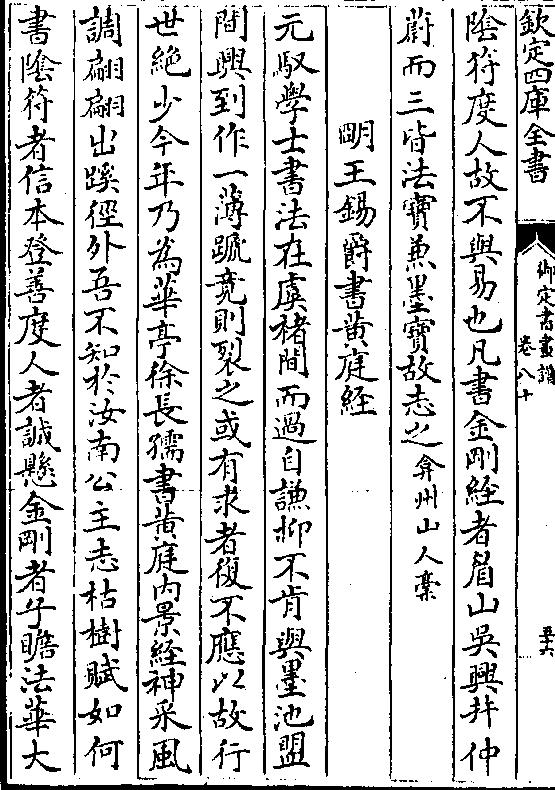 欽定四庫全書
御定書畫譜
卷八十
五十六
陰符度人故不與易也凡書金剛經者眉山吳興幷仲
蔚而三皆法寶兼墨寶故志之弇州山人藁
明王錫爵書黄庭經
元馭學士書法在虞褚間而過自謙抑不肯與墨池盟
間興到作一薄蹏竟則裂之或有求者復不應以故行
世絶少今年乃為華亭徐長孺書黄庭内景經神采風
調翩翩出蹊徑外吾不知於汝南公主志枯樹賦如何
書陰符者信本登善度人者誠懸金剛者子瞻法華大